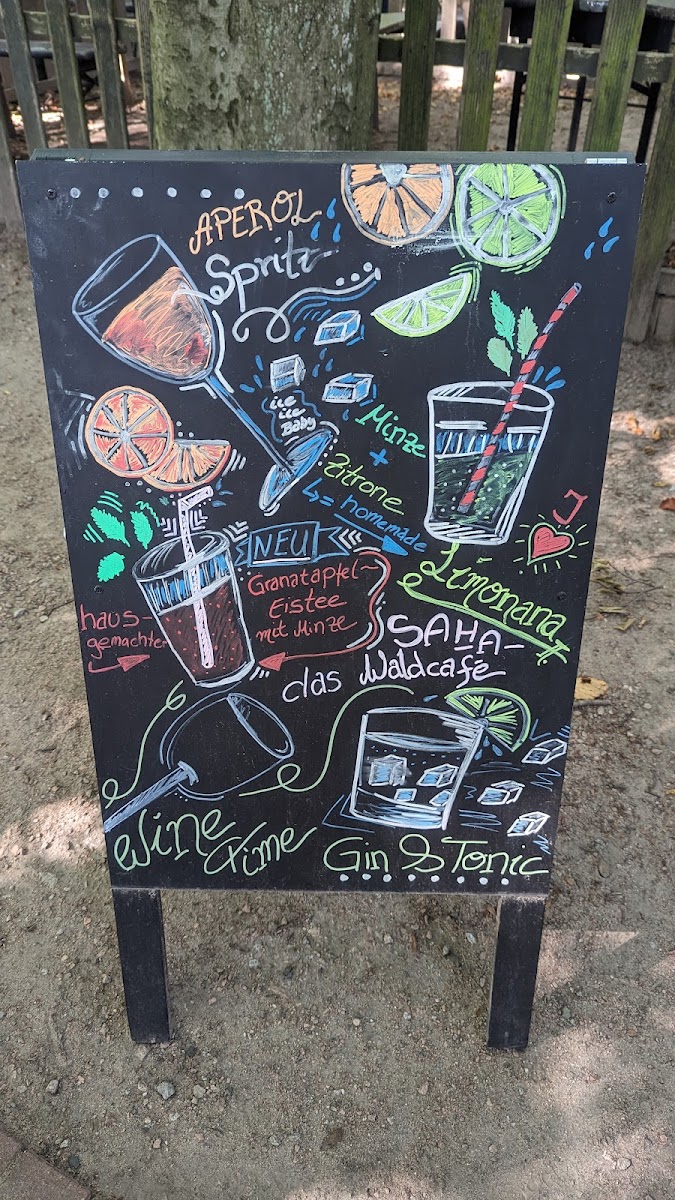 APEROL
Spritz
ice
ice
Baby
Minze
+
Zitrone
↳ = homemade
I ♥
Limonana
NEU
Granatapfel-
Eistee
mit Minze
haus-
gemachter
SAHA-
das Waldcafé
Wine
Time
Gin & Tonic